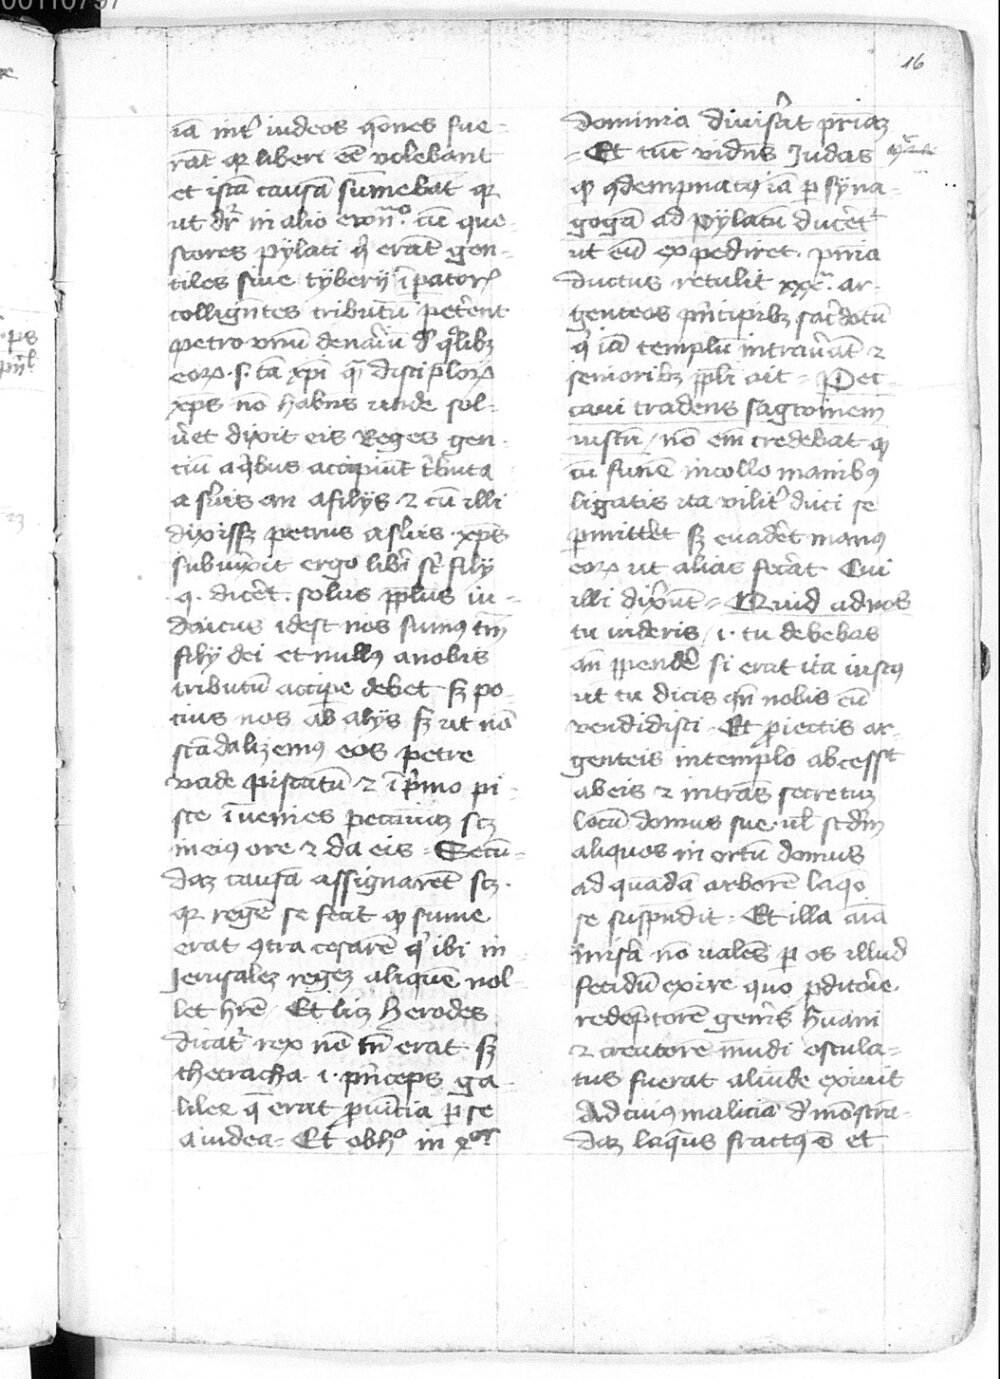 16
iā int͛ iudeos qōnes fue-
rāt qr liberi eē volebant
et istā causā sūmebat qr
ut dr̄ in alio ewnᵒ. cū que-
stores pylati q̄ erāt gen-
tiles siue tyberij īpatorꝭ
collignt̄es tributū pet̄ent
petro vnū denariū đ qͥlibꝫ
eoꝝ .s. tā xp̄i qͣ disciploꝝ
xp̄s nō habn̄s unde sol-
u͛et dixit eis Reges gen-
ciū a qͥbus accipiūt tͥbuta
a suis an a filijs ⁊ cū illi
dixissꝫ petrus a suis xp̄s
subiūxit ergo libi͛ st̄ filij
q. dic͛et. solus ppl̄us iu-
daicus idest nos sumꝰ tm̄
filij dei et nullꝰ a nobis
tributū accipe debet sꝫ po-
cius nos ab alijs sꝫ ut nō
scādalizemꝰ eos petre
vade piscatū ⁊ ī pͥmo pi-
sce īuenies pecuniā scꝫ
in eiꝰ ore ⁊ da eis Secū-
daꝫ causā assignarēt scꝫ.
qr regē se fecit qͦ sume
erat ꝯtra cesarē qͥ ibi in
Jerusalez regeꝫ aliquē nol-
let hr̄e Et licꝫ Herodes
dicat͛ rex nō tn̄ erat sꝫ
thetracha .i. pͥnceps ga-
lilee q̄ erat ꝓuīcia ꝑ se
a iudea Et obħᵒ in
dominia diuis͛at pͥriaꝫ
Et tūc vidn̄s Judas
qͦ ꝯdempnatꝰ iā ꝑ syna-
gogā ad pylatū ducēt͛
ut eū expediret. pn̄ia
ductus retulit xxxͣ. ar-
genteos pͥncipibꝫ sac͛dotū
qͥ iā templū intrau͛āt ⁊
senioribꝫ ppl̄i ait Pec-
caui tradens sāgwinem
iustū / nō em̄ credebat qͦ
cū fune in collo manibꝰ
ligatis ita vilit͛ duci se
ꝑmitt͛et sꝫ euad͛et manꝰ
eoꝝ ut alias fec͛at Cui
illi dix͛ūt Quid ad nos
tu videris .i. tu debebas
an̄ ppend͛e si erat ita iustꝰ
ut tu dicis qn̄ nobis eū
vendidisti Et ꝓiectis ar-
genteis in templo abcessit
ab eis ⁊ intrās secretuꝫ
locū domus sue ul̄ scd̄m
aliquos in ortū domus
ad quadā arborē laqͦ
se suspēdit Et illa aīa
mis͛a nō valēs ꝑ os illud
fetidū exire quo ꝓditorie
redēptorē gen͛is hūani
⁊ creatorē mūdi oscula-
tus fuerat aliūde exiuit
Ad cuiꝰ maliciā đmōstrā-
daꝫ laqͣus fractꝰ ē et